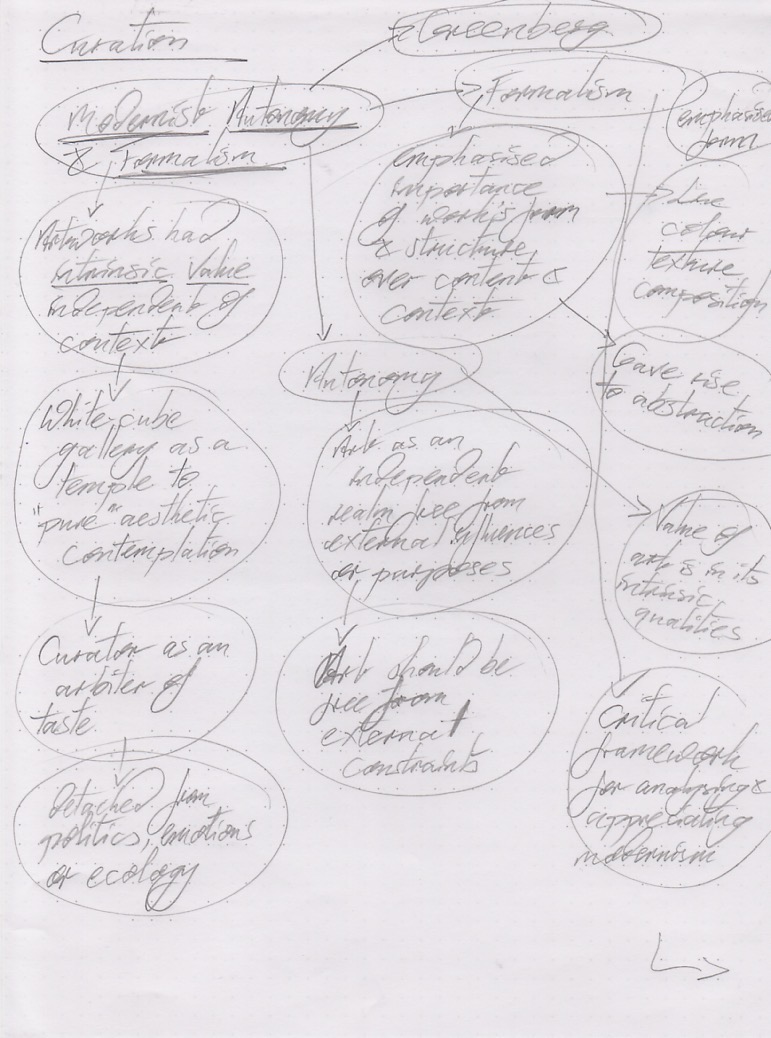 Curation
& Greenberg
Modernist Autonomy
& Formalism
Formalism
emphasised
form
emphasised
importance
of work's form
& structure
over content &
context
Line
colour
texture
composition
Gave rise
to abstraction
Artworks had
intrinsic value
independent of
context
White cube
gallery as a
temple to
"pure" aesthetic
contemplation
Curator as an
arbiter of
taste
detached from
politics, emotions
or ecology
Autonomy
Art as an
independent
realm free from
external influences
or purposes
Art should be
free from
external
constraints
Value of
art is in its
intrinsic
qualities
Critical
framework
for analysing &
appreciating
modernism